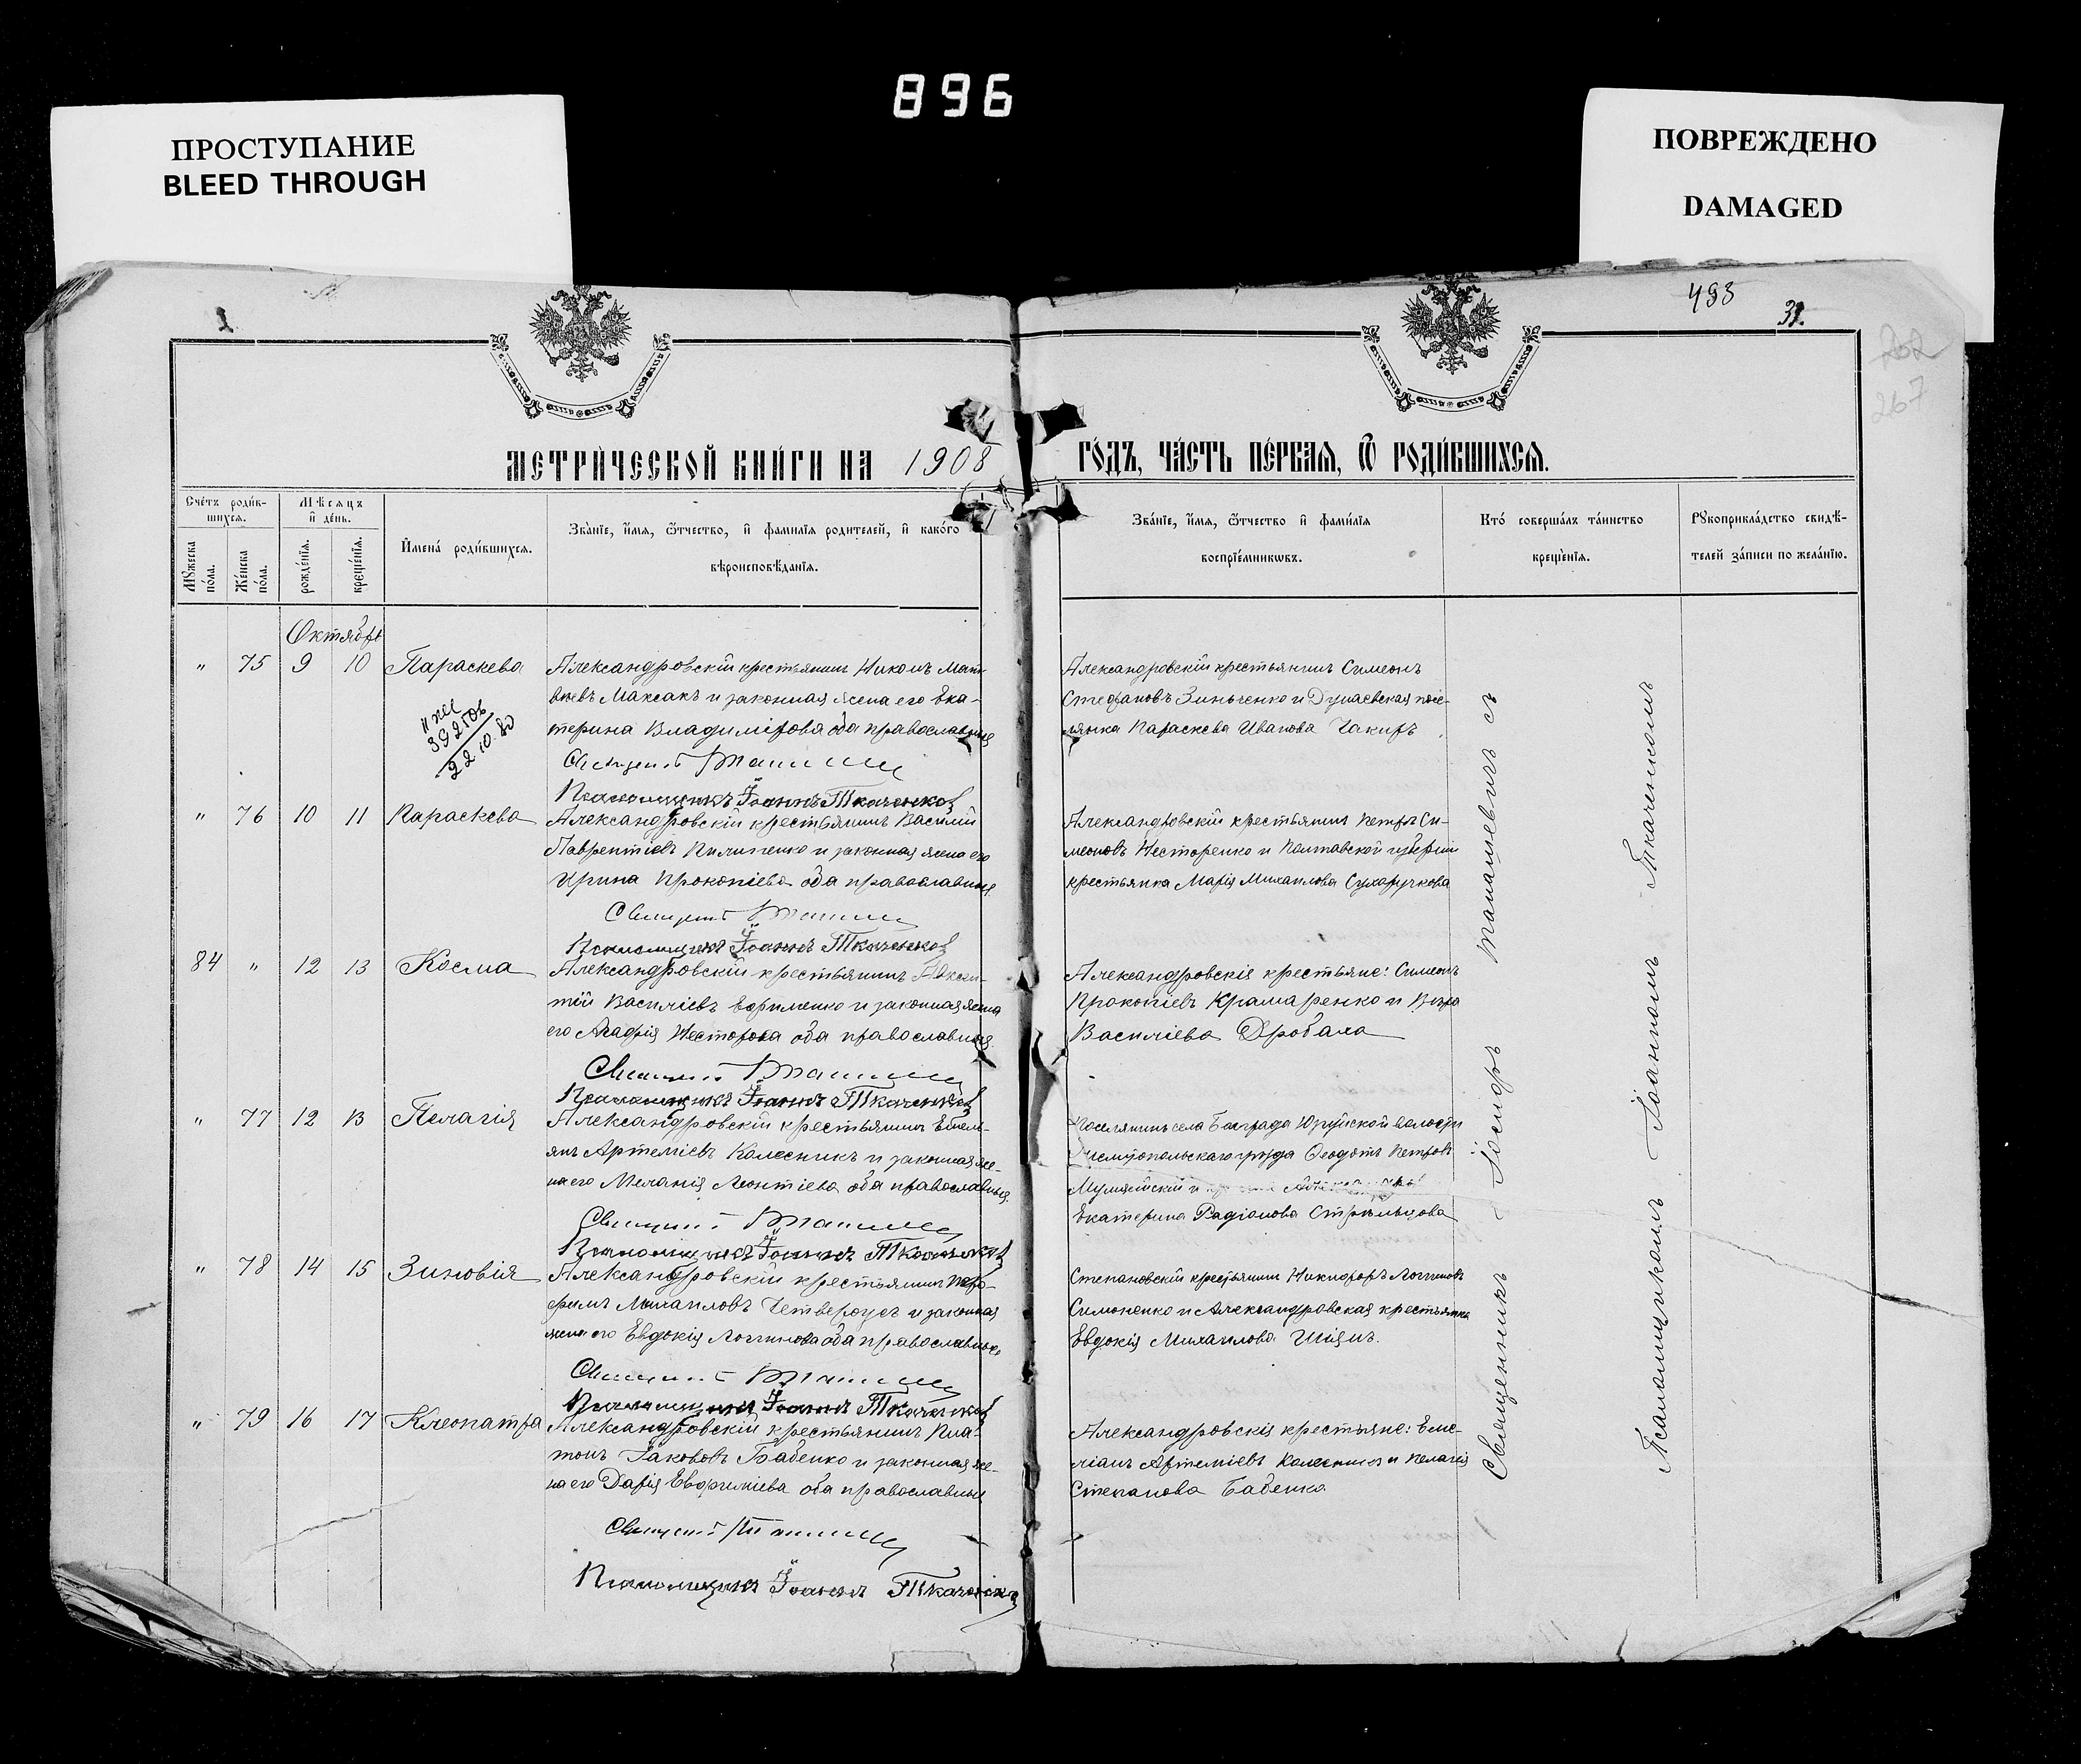 896
ПРОСТУПАНИЕ
BLEED THROUGH
ПОВРЕЖДЕНО
DAMAGED
493
31.
267
МЕТРИ́ЧЕСКОЙ КНИ́ГИ НА 1908 ГО́ДЪ, ЧА́СТЬ ПЕ́РВАЯ, Ѿ РОДИ́ВШИХСЯ.
Счетъ роди́в-
шихся.
Мѣсяцъ
и҆ де́нь.
Мꙋжеска по́ла.
Же́нска по́ла.
рожде́нїя.
креще́нїя.
И҆мена̀ роди́вшихся.
Зва́нїе, и҆́мя, ѻ҆́тчество, и҆ фами́лїя роди́телей, и҆ како́го
вѣроисповѣ́данїя.
Зва́нїе, и҆́мя, ѻ҆́тчество и҆ фами́лїя
воспрїе́мникѡвъ.
Кто̀ соверша́лъ та́инство
креще́нїя.
Рꙋкоприкла́дство свидѣ́-
телей за́писи по жела́нїю.
Октябрь
" 75 9 10 Параскева
Александровскій крестьянинъ Никонъ Мат-
вѣевъ Максакъ и законная жена его Ека-
терина Владимірова оба православные
Псаломщикъ Іоаннъ Ткаченковъ
Александровскій крестьянинъ Симеонъ
Стефановъ Зинченко и Дунаевская посе-
лянка Параскева Иванова Чакиръ
22.10.80
" 76 10 11 Параскева
Александровскій крестьянинъ Василій
Лаврентіевъ Пилипенко и законная жена его
Ирина Прокопіева оба православные
Псаломщикъ Іоаннъ Ткаченковъ
Александровскій крестьянинъ Петръ Си-
меоновъ Несторенко и Полтавской губерніи
крестьянка Марія Михаилова Сухоручкова
84 " 12 13 Косма
Александровскій крестьянинъ
Василіевъ и законная жена
его Агафія Несторова оба православные
Псаломщикъ Іоаннъ Ткаченковъ
Александровскія крестьяне: Симеонъ
Прокопіевъ Крамаренко и Вѣра
Василіева Дробаха
" 77 12 13 Пелагія
Александровскій крестьянинъ Емели-
янъ Артеміевъ Колесникъ и законная же-
на его Меланія Леонтіева оба православные
Псаломщикъ Іоаннъ Ткаченковъ
Поселянинъ села волости
уѣзда Ѳеодотъ Петровъ
и
Екатерина Радіонова Стрѣльцова
" 78 14 15 Зиновія
Александровскій крестьянинъ
Михаиловъ Четверусъ и законная
жена его Евдокія Логгинова оба православные
Псаломщикъ Іоаннъ Ткаченковъ
Степановскій крестьянинъ Никифоръ Логгиновъ
Симоненко и Александровская крестьянка
Евдокія Михаилова Шіянъ.
" 79 16 17 Клеопатра
Александровскій крестьянинъ Пла-
тонъ Іакововъ Бабенко и законная же-
на его Дарія Евфиміева оба православные
Псаломщикъ Іоаннъ Ткаченковъ
Александровскія крестьяне: Еме-
ліанъ Артеміевъ Колесникъ и Пелагія
Степанова Бабенко
Священникъ Іосифъ Танашевичъ съ
Псаломщикомъ Іоанномъ Ткаченкомъ